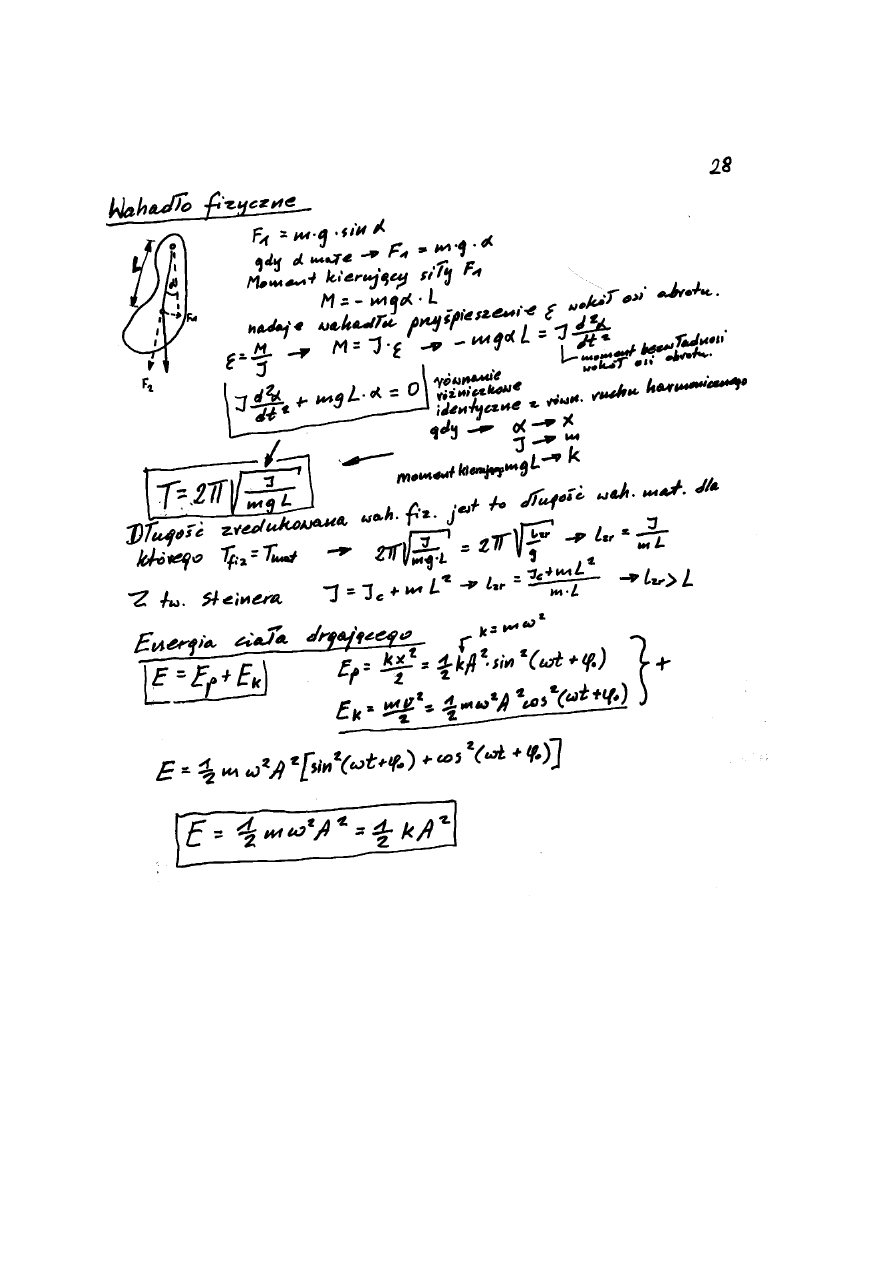 28
Wahadło fizyczne
F₁ = m·g·sin α
gdy α małe → F₁ = m·g·α
Moment kierujący siły F₁
M = - mgα·L
nadaje wahadłu przyśpieszenie ε wokół osi obrotu.
ε = M/J → M = J·ε → - mgαL = J d²α/dt²
moment bezwładności
wokół osi obrotu.
L
α
F₁
F₂
J d²α/dt² + mgL·α = 0
równanie
różniczkowe
identyczne z równ. ruchu harmonicznego
gdy → α → x
J → m
moment kierujący mgL → k
T = 2π√(J/mgL)
Długość zredukowana wah. fiz. jest to długość wah. mat. dla
którego Tfiz = Tmat → 2π√(J/mg·L) = 2π√(Lzr/g) → Lzr = J/mL
Z tw. Steinera J = Jc + mL² → Lzr = (Jc + mL²)/(m·L) → Lzr > L
Energia ciała drgającego
k = mω²
E = Ep + Ek
Ep = kx²/2 = ½kA²·sin²(ωt + φ₀) } +
Ek = mv²/2 = ½mω²A²cos²(ωt + φ₀)
E = ½mω²A²[sin²(ωt + φ₀) + cos²(ωt + φ₀)]
E = ½mω²A² = ½kA²